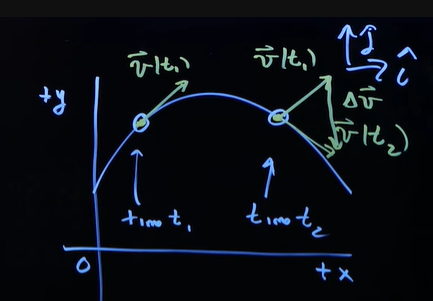 +y
v⃗(t₁)
v⃗(t₁)
ĵ
î
Δv⃗
v⃗(t₂)
time t₁
time t₂
0
+x